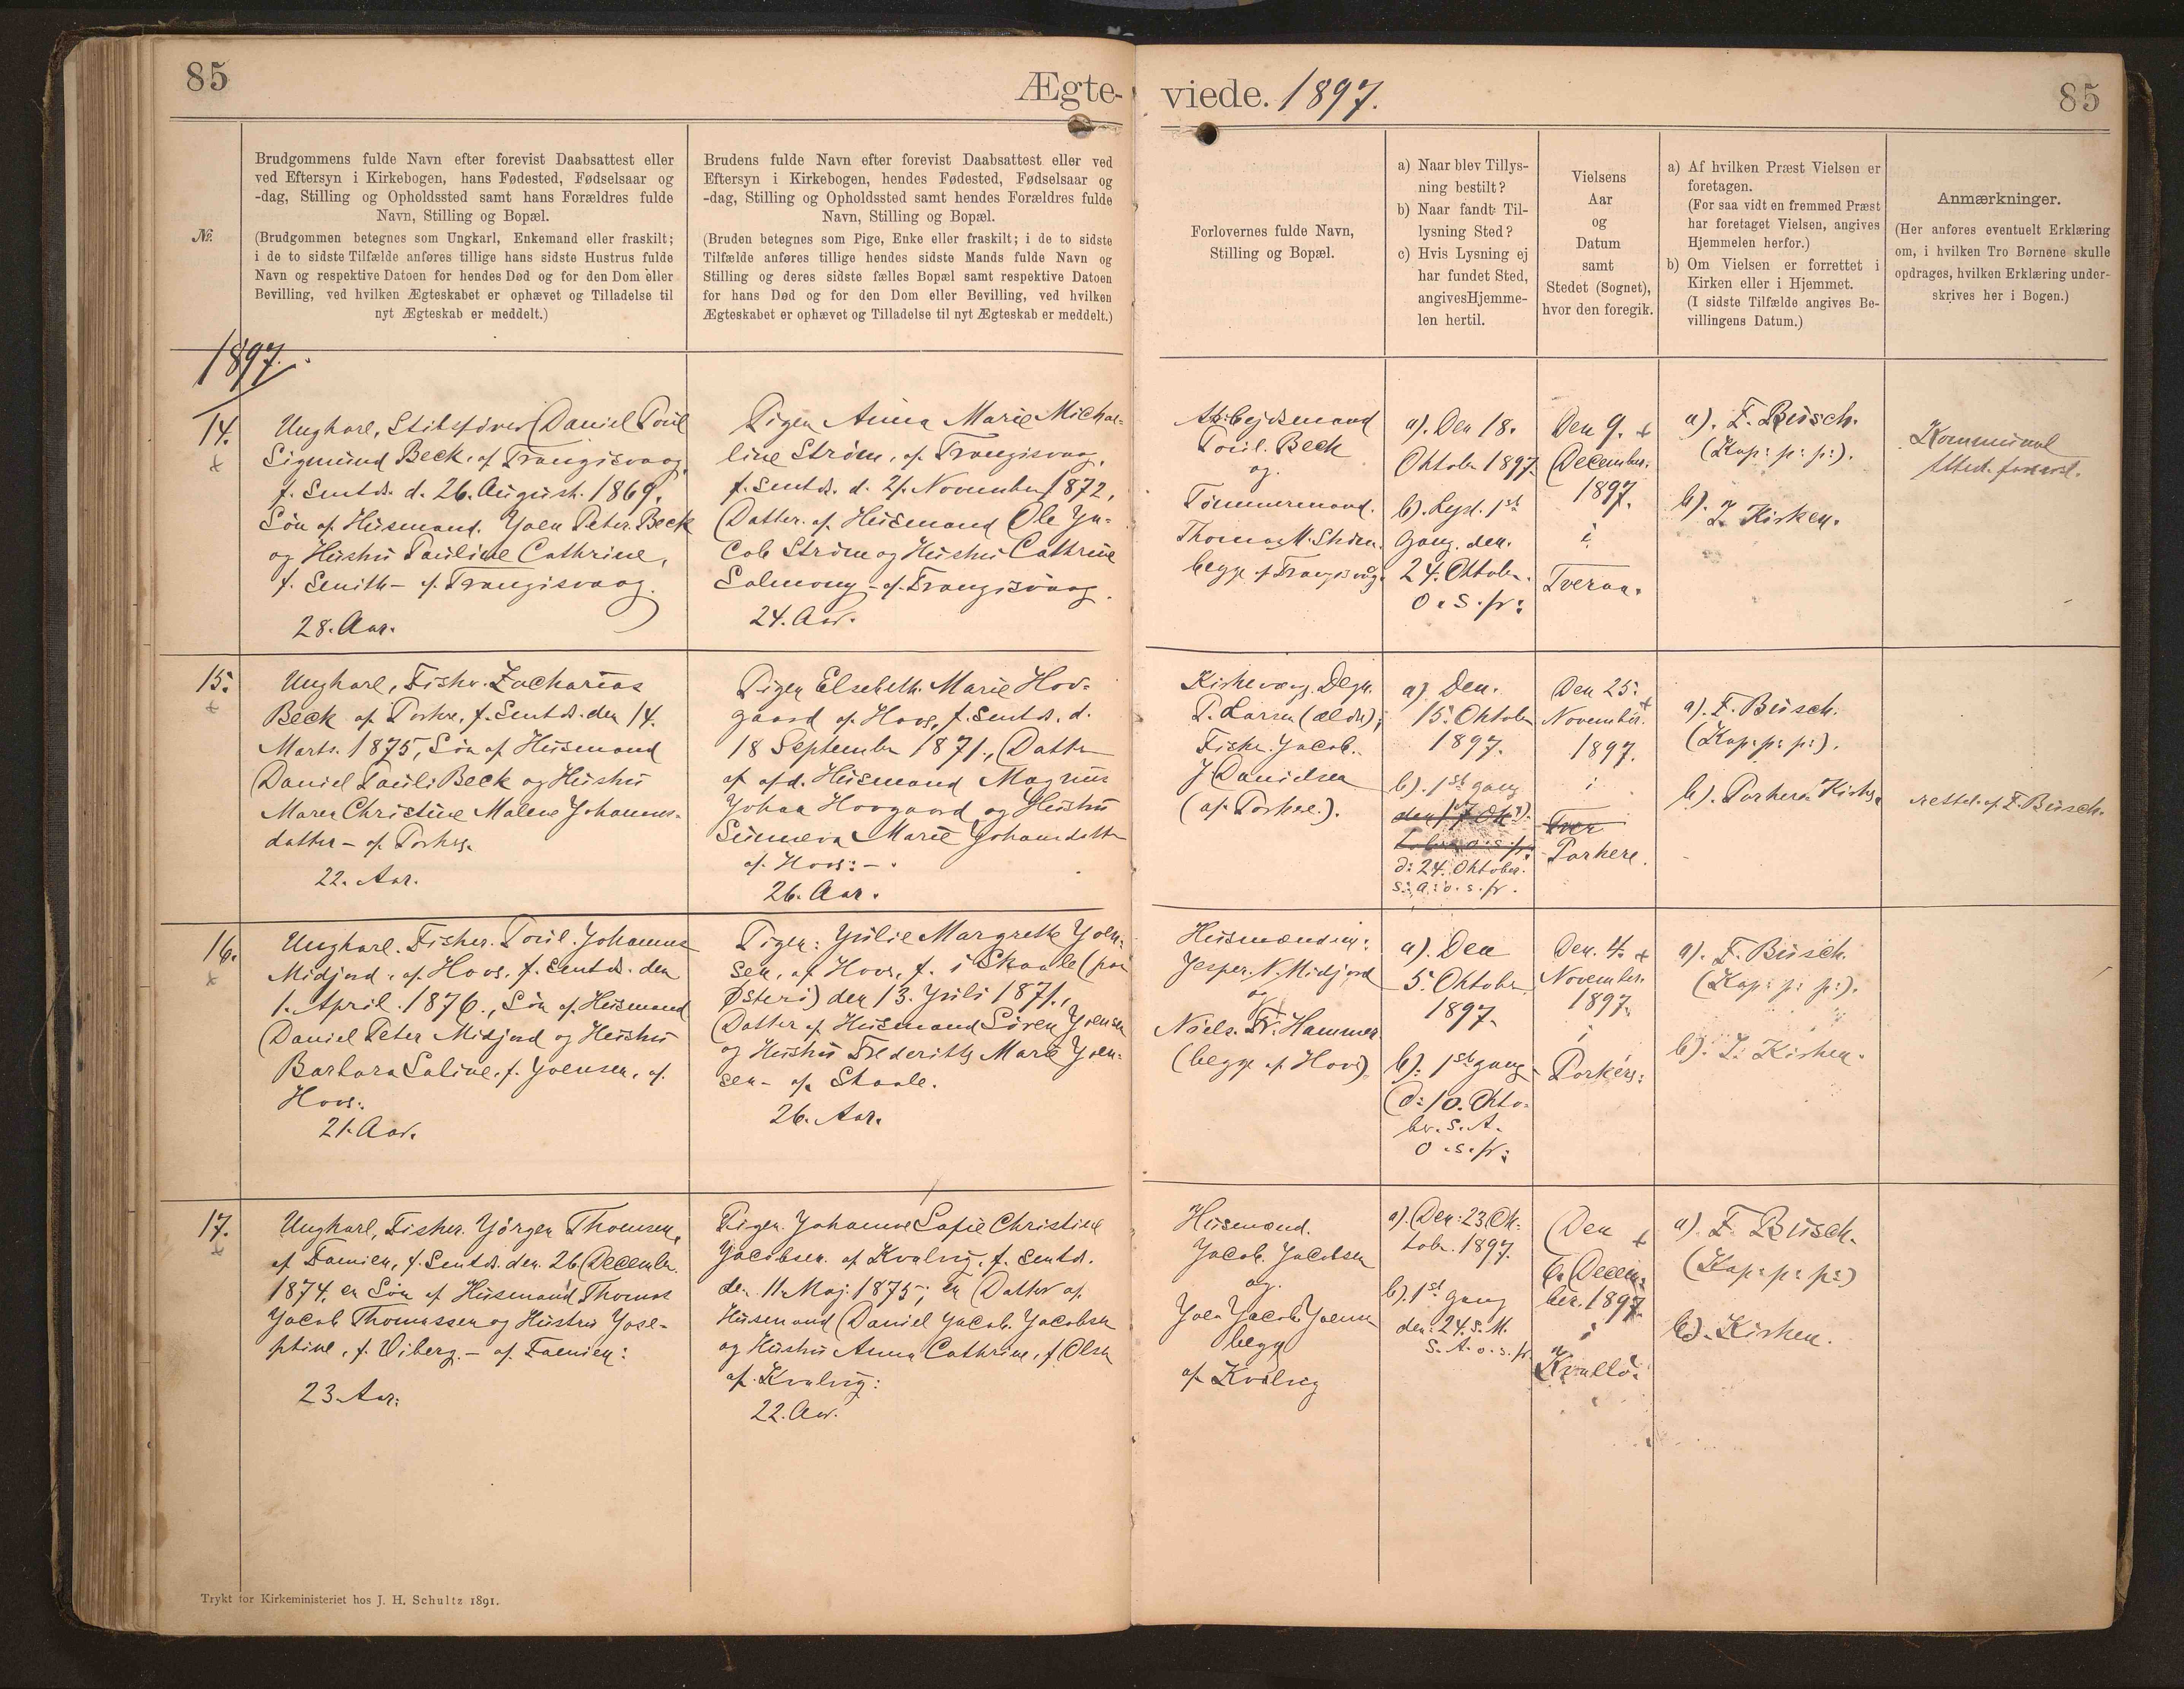 85
Ægte-
viede. 1897.
85
№.
Brudgommens fulde Navn efter forevist Daabsattest eller
ved Eftersyn i Kirkebogen, hans Fødested, Fødselsaar og
-dag, Stilling og Opholdssted samt hans Forældres fulde
Navn, Stilling og Bopæl.
(Brudgommen betegnes som Ungkarl, Enkemand eller fraskilt;
i de to sidste Tilfælde anføres tillige hans sidste Hustrus fulde
Navn og respektive Datoen for hendes Død og for den Dom eller
Bevilling, ved hvilken Ægteskabet er ophævet og Tilladelse til
nyt Ægteskab er meddelt.)
Brudens fulde Navn efter forevist Daabsattest eller ved
Eftersyn i Kirkebogen, hendes Fødested, Fødselsaar og
-dag, Stilling og Opholdssted samt hendes Forældres fulde
Navn, Stilling og Bopæl.
(Bruden betegnes som Pige, Enke eller fraskilt; i de to sidste
Tilfælde anføres tillige hendes sidste Mands fulde Navn og
Stilling og deres sidste fælles Bopæl samt respektive Datoen
for hans Død og for den Dom eller Bevilling, ved hvilken
Ægteskabet er ophævet og Tilladelse til nyt Ægteskab er meddelt.)
Forlovernes fulde Navn,
Stilling og Bopæl.
a) Naar blev Tillys-
ning bestilt?
b) Naar fandt Til-
lysning Sted?
c) Hvis Lysning ej
har fundet Sted,
angives Hjemme-
len hertil.
Vielsens
Aar
og
Datum
samt
Stedet (Sognet),
hvor den foregik.
a) Af hvilken Præst Vielsen er
foretagen.
(For saa vidt en fremmed Præst
har foretaget Vielsen, angives
Hjemmelen herfor.)
b) Om Vielsen er forrettet i
Kirken eller i Hjemmet.
(I sidste Tilfælde angives Be-
villingens Datum.)
Anmærkninger.
(Her anføres eventuelt Erklæring
om, i hvilken Tro Børnene skulle
opdrages, hvilken Erklæring under-
skrives her i Bogen.)
1897.
14.
Ungkarl, Daniel Poul
Sigmund Beck, af Trangisvaag,
f. Smtds. d. 26. August. 1869,
Søn af Husmand. Joen Peter Beck
og Hustru Pauline Cathrine,
f. Smith - af Trangisvaag.
28. Aar.
Pigen Anna Marie Micha-
line Strøm, af Trangisvaag,
f. Smtds. d. 21. November 1872,
Datter af Husmand Ole Ja-
cob Strøm og Hustru Cathrine
Salmony - af Trangisvaag.
24. Aar.
Arbejdsmand
Poul. Beck
og
Tømmermand.
Thomas M. Strøm.
begge af Trangisvaag.
a). Den 18.
Oktober 1897
b). Lyst. 1st
Gang. den.
24. Oktober.
o. s. fr:
Den 9.
December.
1897.
i
Tveraa.
a). F. Busch.
(Kap: p: p:).
b). I Kirken.
Kommunal
15.
Ungkarl, Fisker. Zacharias
Beck af Porkere, f. Smtds. den 14.
Marts. 1875, Søn af Husmand
Daniel Pauli Beck og Hustru
Maren Christine Malene Johannes-
datter - af Porkere.
22. Aar.
Pigen Elsebeth. Marie Hov-
gaard af Hove, f. Smtds. d.
18 September 1871., Datter
af afd. Husmand Magnus
Johan Hovgaard og Hustru
Sunneva Marie Johansdatter
af Hove: -.
26. Aar.
Kirkeværg. Degn.
P. Larsen (ældr);
Fisker. Jacob.
J Danielsen
(af Porkere.).
a). Den.
15. Oktober
1897.
b). 1st gang
den 17 Ok-
tober o. s. fr:
d: 24. Oktober.
s: a: o. s. fr.
Den 25.
November.
1897.
i
Tver
Porkere.
a). F. Busch.
(Kap: p: p:).
b). Porkere Kirke.
rettet af F. Busch.
16.
Ungkarl. Fisker. Poul. Johannes
Midjord, af Hove, f. Smtds. den
1. April. 1876., Søn af Husmand
Daniel Peter Midjord og Hustru
Barbara Saline, f. Joensen, af
Hove:
21. Aar.
Pigen: Julie Margrethe Joen-
sen, af Hove, f. i Skaale (paa
Østerø) den 13. Juli 1871.,
Datter af Husmand Søren Joensen
og Hustru Frederikke Marie Joen-
sen - af Skaale.
26. Aar.
Husmændene:
Jesper. N. Midjord
og
Niels. Fr. Hammer
(begge af Hove)
a). Den
5. Oktober
1897.
b): 1st gang
d: 10. Okto-
ber. S. A.
o. s. fr:
Den. 4.
November.
1897.
i
Porkere:
a). F. Busch.
(Kap: p: p:).
b). I. Kirken.
17.
Ungkarl, Fisker. Jørgen Thomsen,
af Famien, f. Smtds. den. 26. December.
1874, en Søn af Husmand Thomas
Jacob Thomassen og Hustru Jose-
phine, f. Viberg. - af Famien:
23. Aar:
Pigen. Johanne Sofie Christine
Jacobsen. af Kvalvig, f. Smtds.
den. 11. Maj. 1875; en Datter af
Husmand Daniel Jacob. Jacobsen
og Hustru Anna Cathrine, f Olsen
af Kvalvig:
22. Aar.
Husmænd.
Jacob. Jacobsen
og.
Joen Jacob Joensen
begge
af Kvalvig
a). Den: 23 Ok-
tober. 1897.
b). 1st gang
den: 24. S. M.
S. A. o. s. fr.
Den
6. Decem-
ber. 1897.
i
Kvalbø.
a). F. Busch.
(Kap: p: p:)
b). Kirken.
Trykt for Kirkeministeriet hos J. H. Schultz 1891.